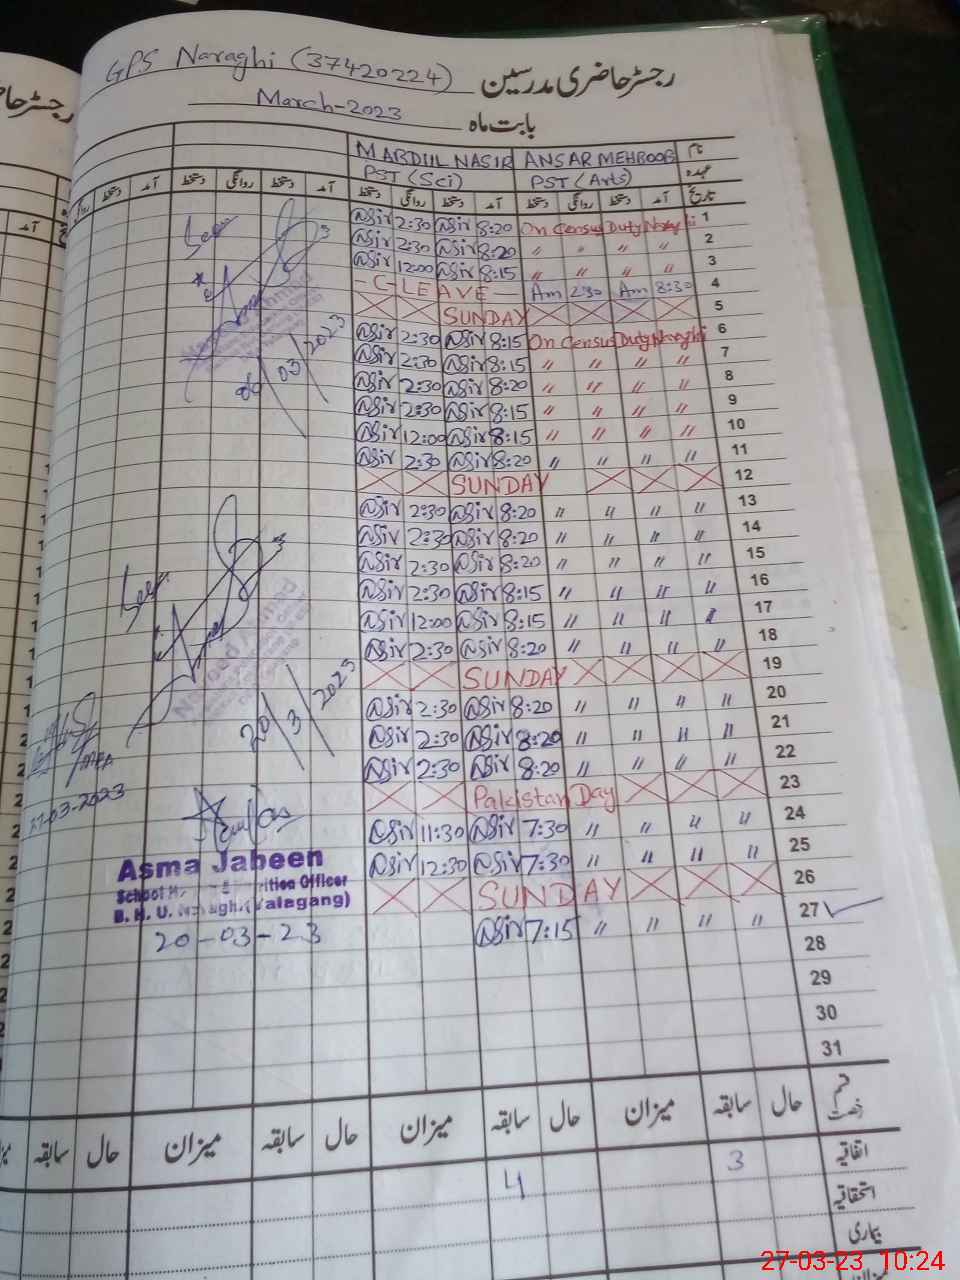 GPS Naraghi (37420224) رجسٹر حاضری مدرسین
March-2023 بابت ماہ
MABDUL NASIR ANSAR MEHBOOB نام
PST (Sci) PST (Arts) عہدہ
دستخط روانگی دستخط آمد دستخط روانگی دستخط آمد تاریخ
Nasir 2:30 Nasir 8:20 On Census Duty Naraghi 1
Nasir 2:30 Nasir 8:20 〃 〃 〃 〃 2
Nasir 12:00 Nasir 8:15 〃 〃 〃 〃 3
- C LEAVE - Am 2:30 Am 8:30 4
SUNDAY 5
Nasir 2:30 Nasir 8:15 On Census Duty Naraghi 6
Nasir 2:30 Nasir 8:15 〃 〃 〃 〃 7
Nasir 2:30 Nasir 8:20 〃 〃 〃 〃 8
Nasir 2:30 Nasir 8:15 〃 〃 〃 〃 9
Nasir 12:00 Nasir 8:15 〃 〃 〃 〃 10
Nasir 2:30 Nasir 8:20 〃 〃 〃 〃 11
SUNDAY 12
Nasir 2:30 Nasir 8:20 〃 〃 〃 〃 13
Nasir 2:30 Nasir 8:20 〃 〃 〃 〃 14
Nasir 2:30 Nasir 8:20 〃 〃 〃 〃 15
Nasir 2:30 Nasir 8:15 〃 〃 〃 〃 16
Nasir 12:00 Nasir 8:15 〃 〃 〃 〃 17
Nasir 2:30 Nasir 8:20 〃 〃 〃 〃 18
SUNDAY 19
Nasir 2:30 Nasir 8:20 〃 〃 〃 〃 20
Nasir 2:30 Nasir 8:20 〃 〃 〃 〃 21
Nasir 2:30 Nasir 8:20 〃 〃 〃 〃 22
Pakistan Day 23
Nasir 11:30 Nasir 7:30 〃 〃 〃 〃 24
Nasir 12:30 Nasir 7:30 〃 〃 〃 〃 25
SUNDAY 26
Nasir 7:15 〃 〃 〃 〃 27
28
29
30
31
Seen
06/03/2023
Seen
20/3/2023
27-03-2023
Asma Jabeen
School Nutrition Officer
B. H. U. Naraghi (Talagang)
20-03-23
قسم رخصت حال سابقہ میزان حال سابقہ میزان حال سابقہ میزان حال سابقہ
اتفاقیہ 3 4
استحقاقیہ
بیماری
27-03-23 10:24